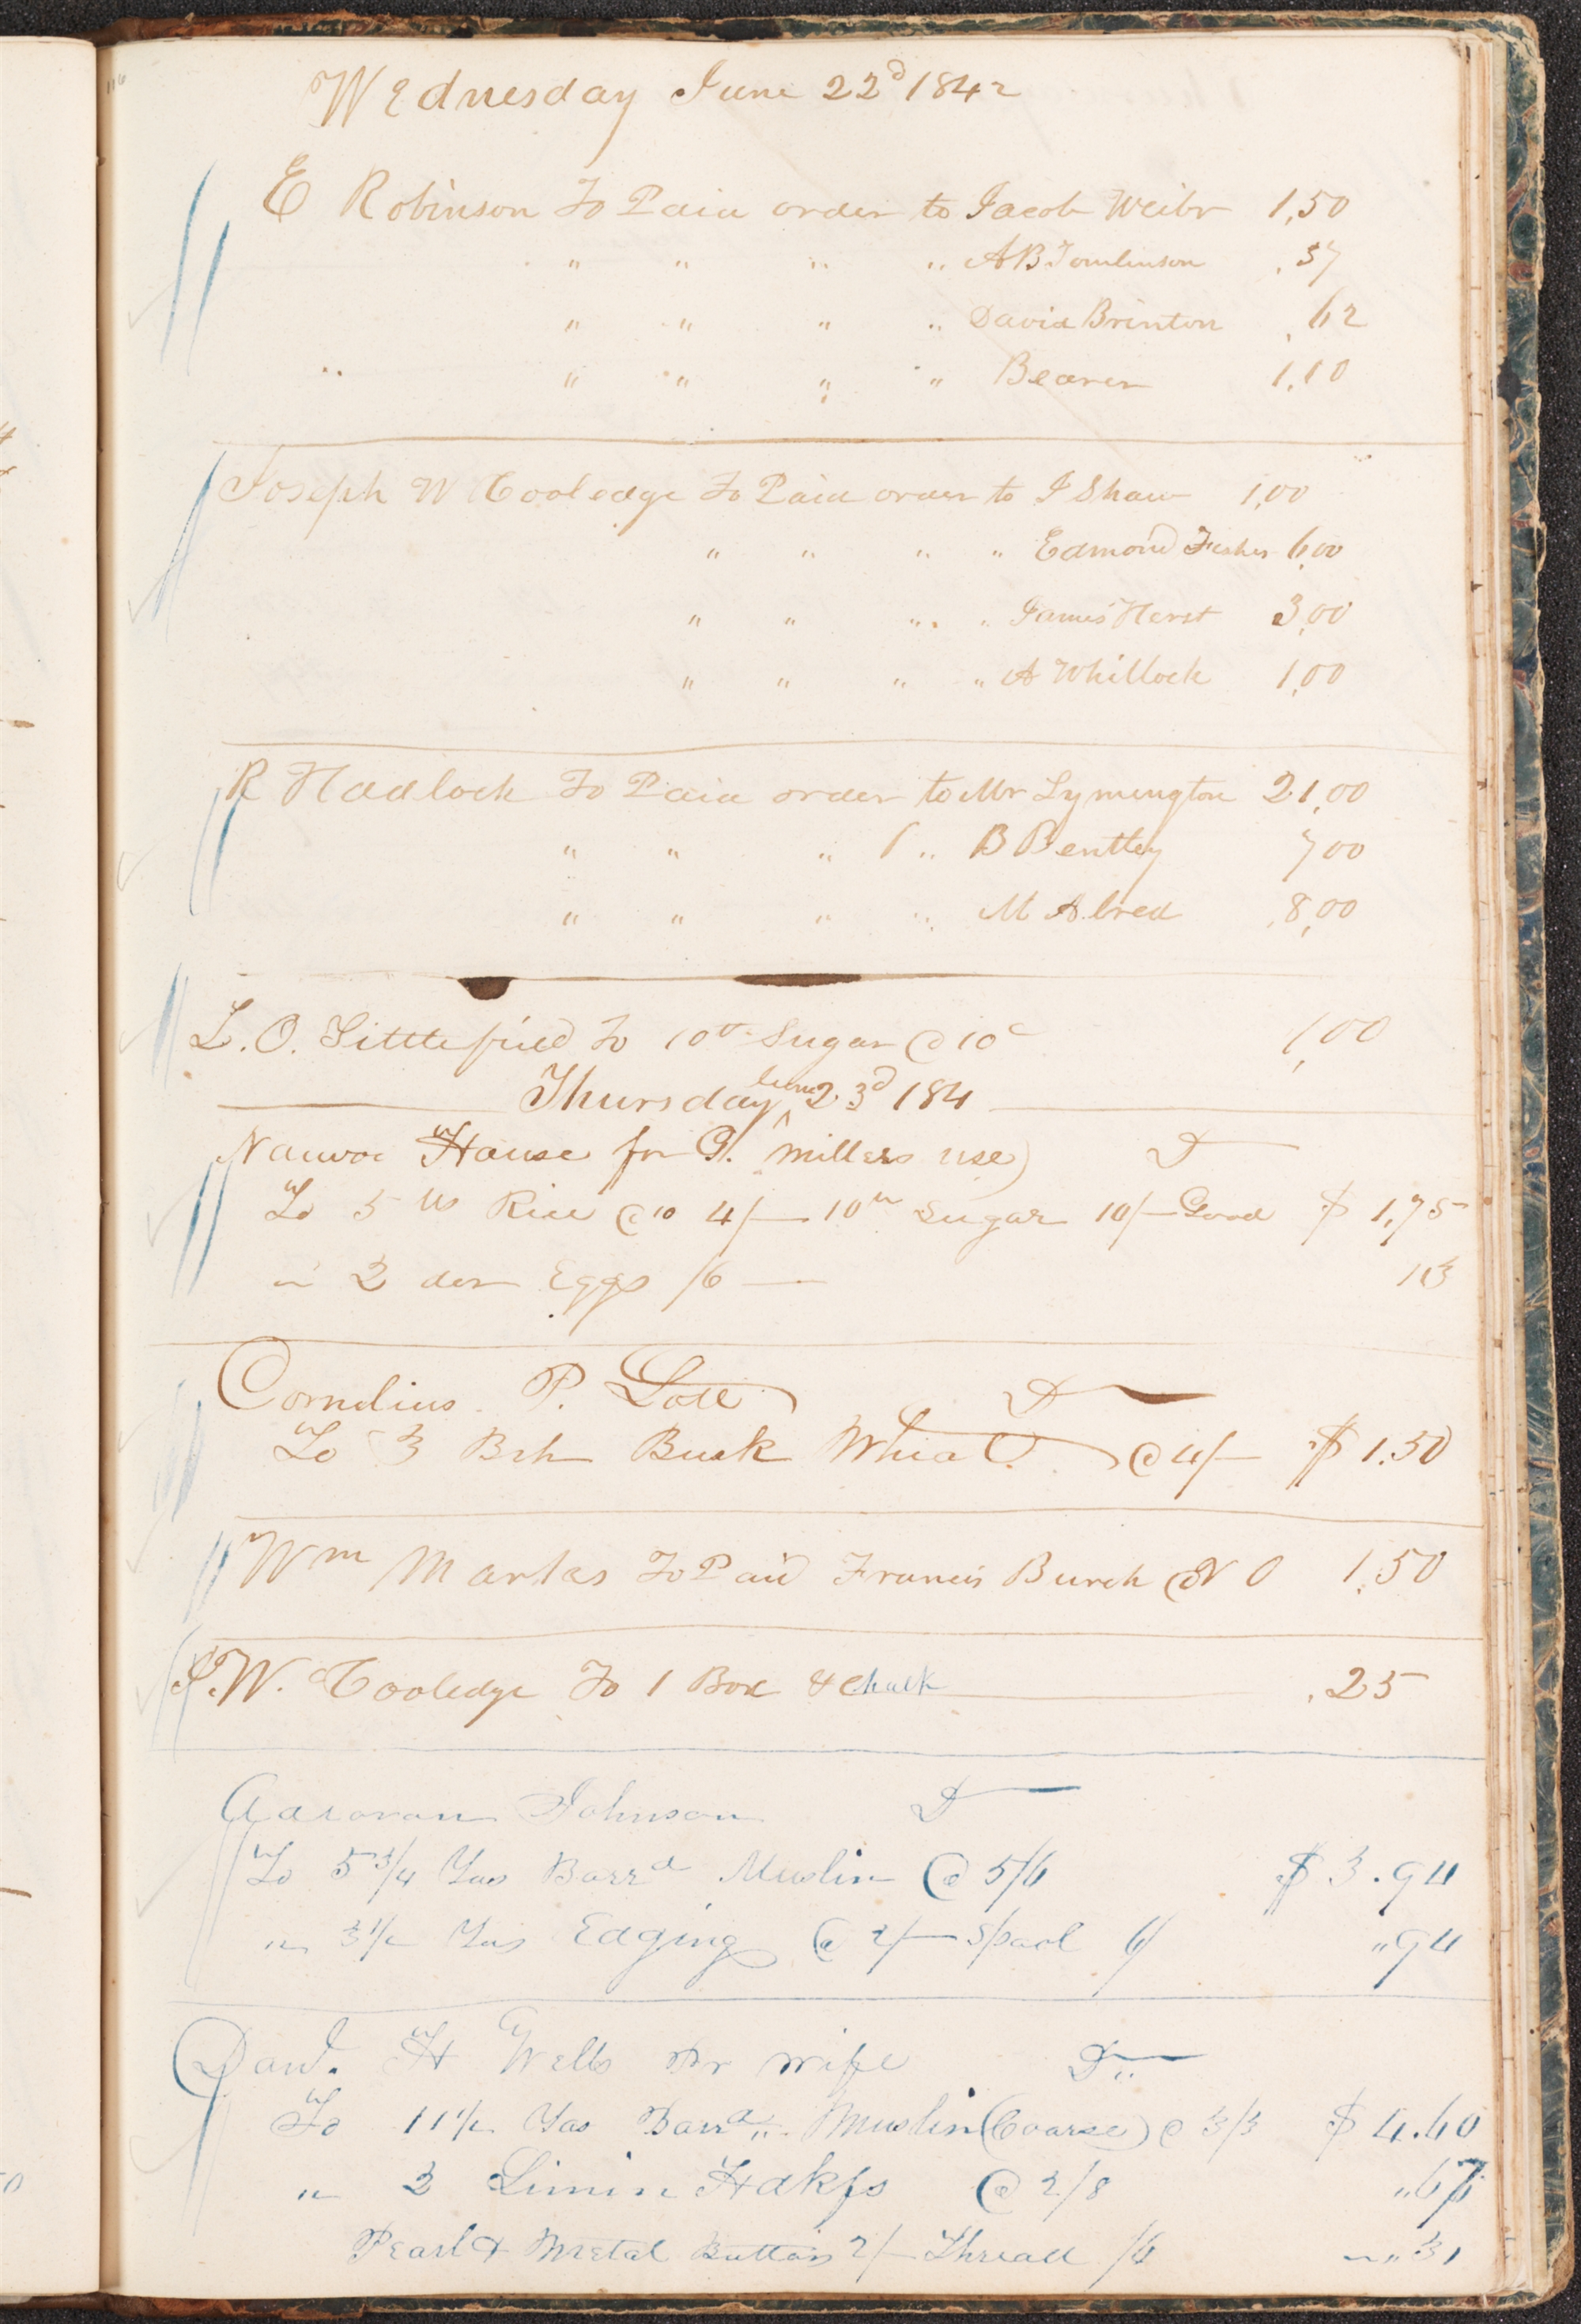 116
Wednesday June 22d 1842
E Robinson To Paid order to Jacob Weibr 1,50
" " " " A B Tomlinson .37
" " " " David Brinton .62
" " " " " Bearer 1,10
Joseph W Cooledge To Paid order to J Shaw 1,00
" " " " Edmond Fisher 6,00
" " " " James Herst 3,00
" " " " A Whillock 1,00
R Hadlock To Paid order to Mr Lymington 21,00
" " " " B Bentley 7 00
" " " " M Alred 8,00
L. O. Littlefield To 10 Sugar @ 10c 1,00
Thursday June 23d 184
Nauvoo House for G. Millers use) Dr
To 5 lbs Rice @ 10 4/— 10 lb Sugar 10/— Good $ 1,75
" 2 doz Eggs /6 — 13
Cornelius P. Lott Dr
To 3 Bsh Buck Wheat @ 4/— $ 1.50
Wm Marks To Paid Francis Burch N O 1,50
J. W. Cooledge To 1 Box & Chalk .25
Aaron Johnson Dr
To 5 3/4 Yds Barrd Muslin @ 5/6 $ 3.94
" 3 1/2 Yds Edging @ 2/— Spool 6/ "94
Danl. H Wells Pr wife Dr
To 11 1/2 Yds Barrd Muslin (Coarse) @ 3/3 $ 4.60
" 2 Linnin Hdkfs @ 2/8 "67
Pearl & Metal Buttons 2/— Thread /6 " "31